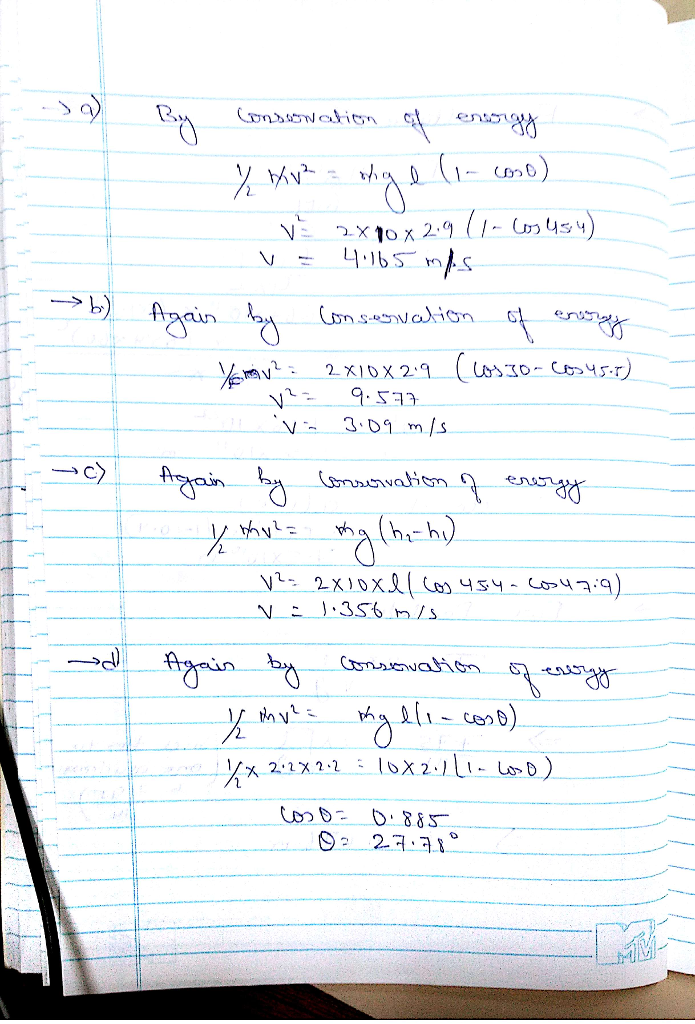 → a) By conservation of energy
1/2 mv² = mg l (1 - cosθ)
v² = 2×10×2.9 (1 - cos 45.4)
v = 4.165 m/s
→ b) Again by conservation of energy
1/2 mv² = 2×10×2.9 (cos30 - cos45.5)
v² = 9.577
v = 3.09 m/s
→ c) Again by conservation of energy
1/2 mv² = mg (h₂-h₁)
v² = 2×10×l (cos 45.4 - cos 47.9)
v = 1.356 m/s
→ d) Again by conservation of energy
1/2 mv² = mg l (1 - cosθ)
1/2 × 2.2×2.2 = 10×2.1 (1 - cosθ)
cosθ = 0.885
θ = 27.78°
MTV